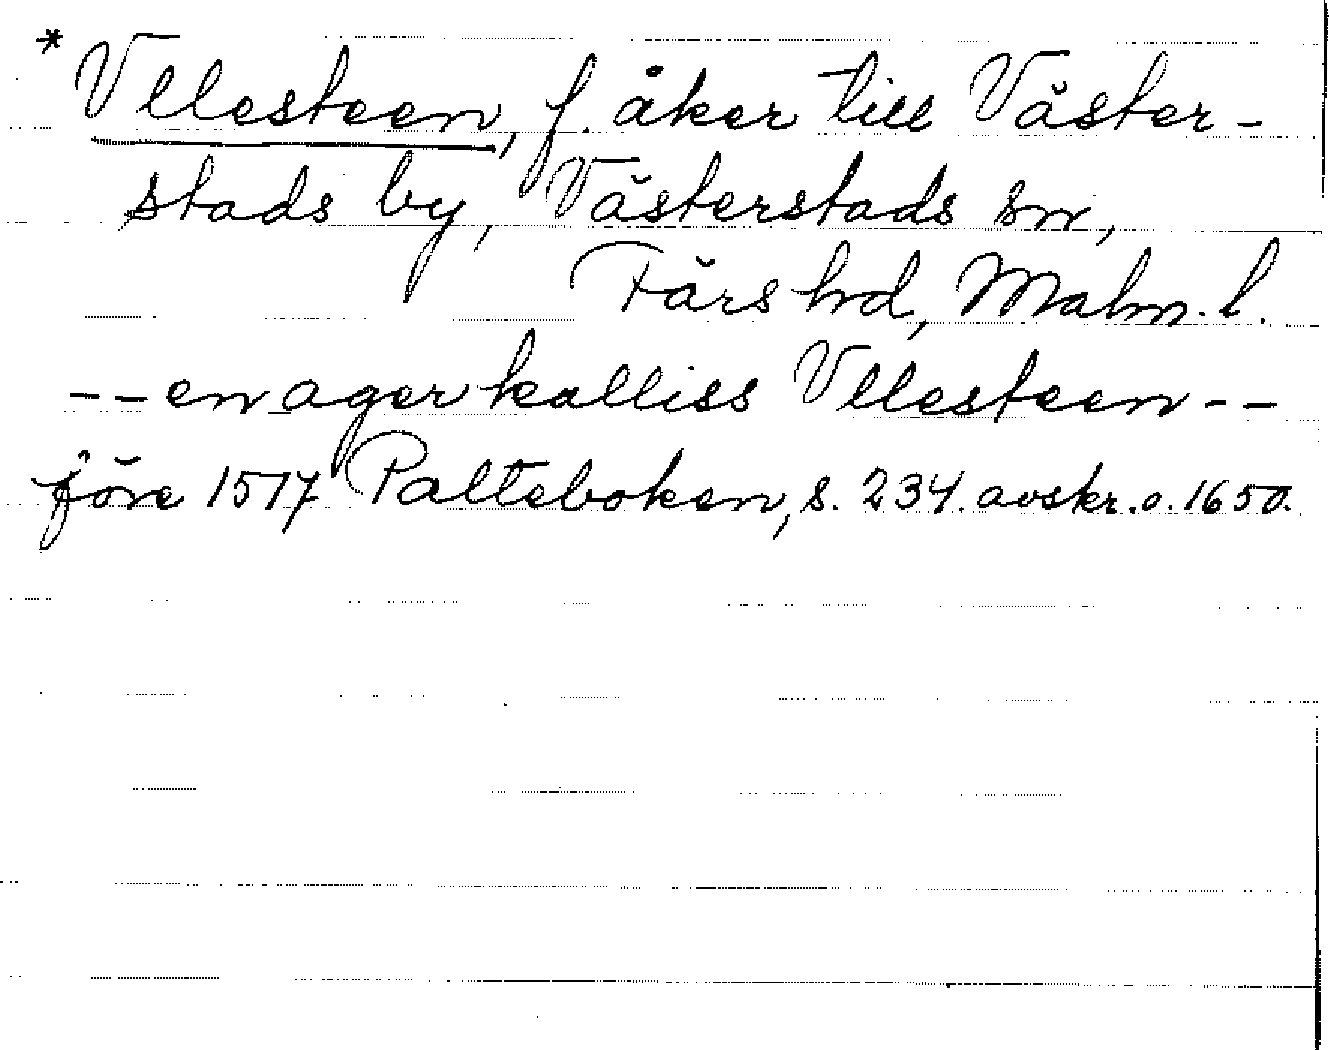 * Vllesteen, f. åker till Väster-
stads by, Västerstads sn,
Färs hd, Malm. l.
-- en ager kalliss Vllesteen --
före 1517 Palteboken, s. 234. avskr. o. 1650.